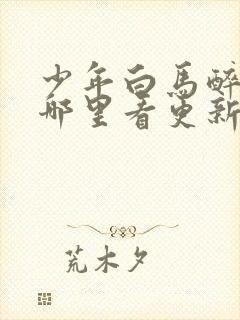 少年白馬醉
哪里看更新
荒木夕